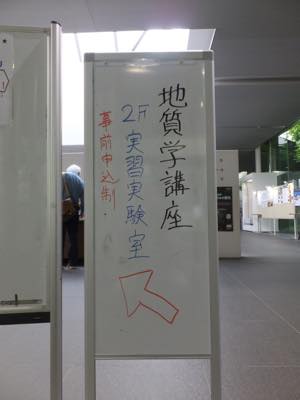 地質学講座
2F 実習実験室
事前申込制.